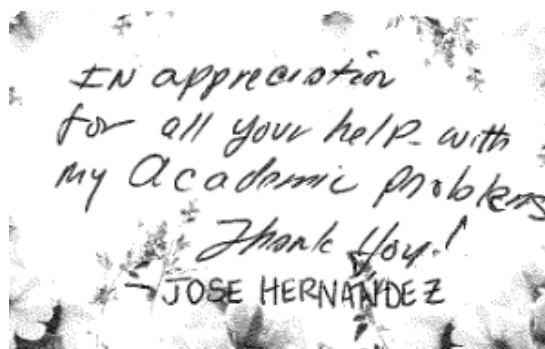 IN appreciation
for all your help with
my Academic problems
Thank You!
- JOSE HERNANDEZ